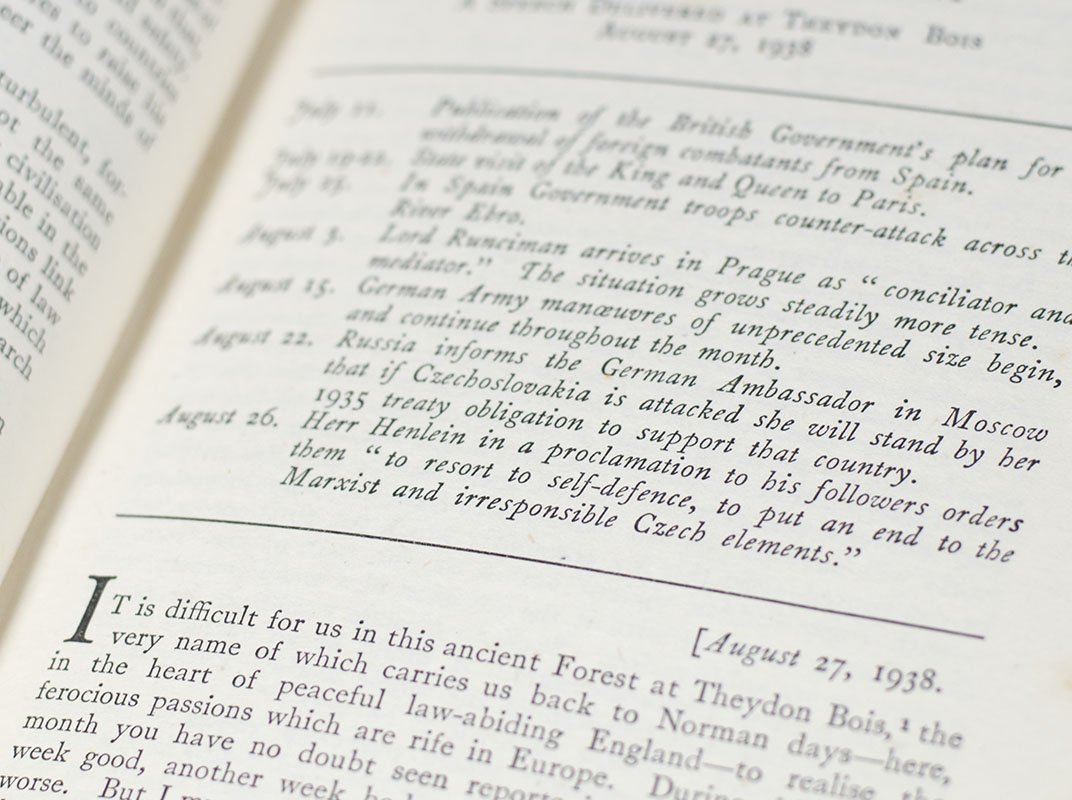 turbulent, for-
the same
civilisation
able in the
ions link
of law
which
arch
A Speech Delivered at Theydon Bois
August 27, 1938
July 21. Publication of the British Government's plan for
withdrawal of foreign combatants from Spain.
State visit of the King and Queen to Paris.
July 25. In Spain Government troops counter-attack across
River Ebro.
August 3. Lord Runciman arrives in Prague as “conciliator and
mediator.” The situation grows steadily more tense.
August 15. German Army manœuvres of unprecedented size begin,
and continue throughout the month.
August 22. Russia informs the German Ambassador in Moscow
that if Czechoslovakia is attacked she will stand by her
1935 treaty obligation to support that country.
August 26. Herr Henlein in a proclamation to his followers orders
them “to resort to self-defence, to put an end to the
Marxist and irresponsible Czech elements.”
[August 27, 1938.
IT is difficult for us in this ancient Forest at Theydon Bois,¹ the
very name of which carries us back to Norman days—here,
in the heart of peaceful law-abiding England—to realise
ferocious passions which are rife in Europe. During
month you have no doubt seen
week good, another week
worse. But I